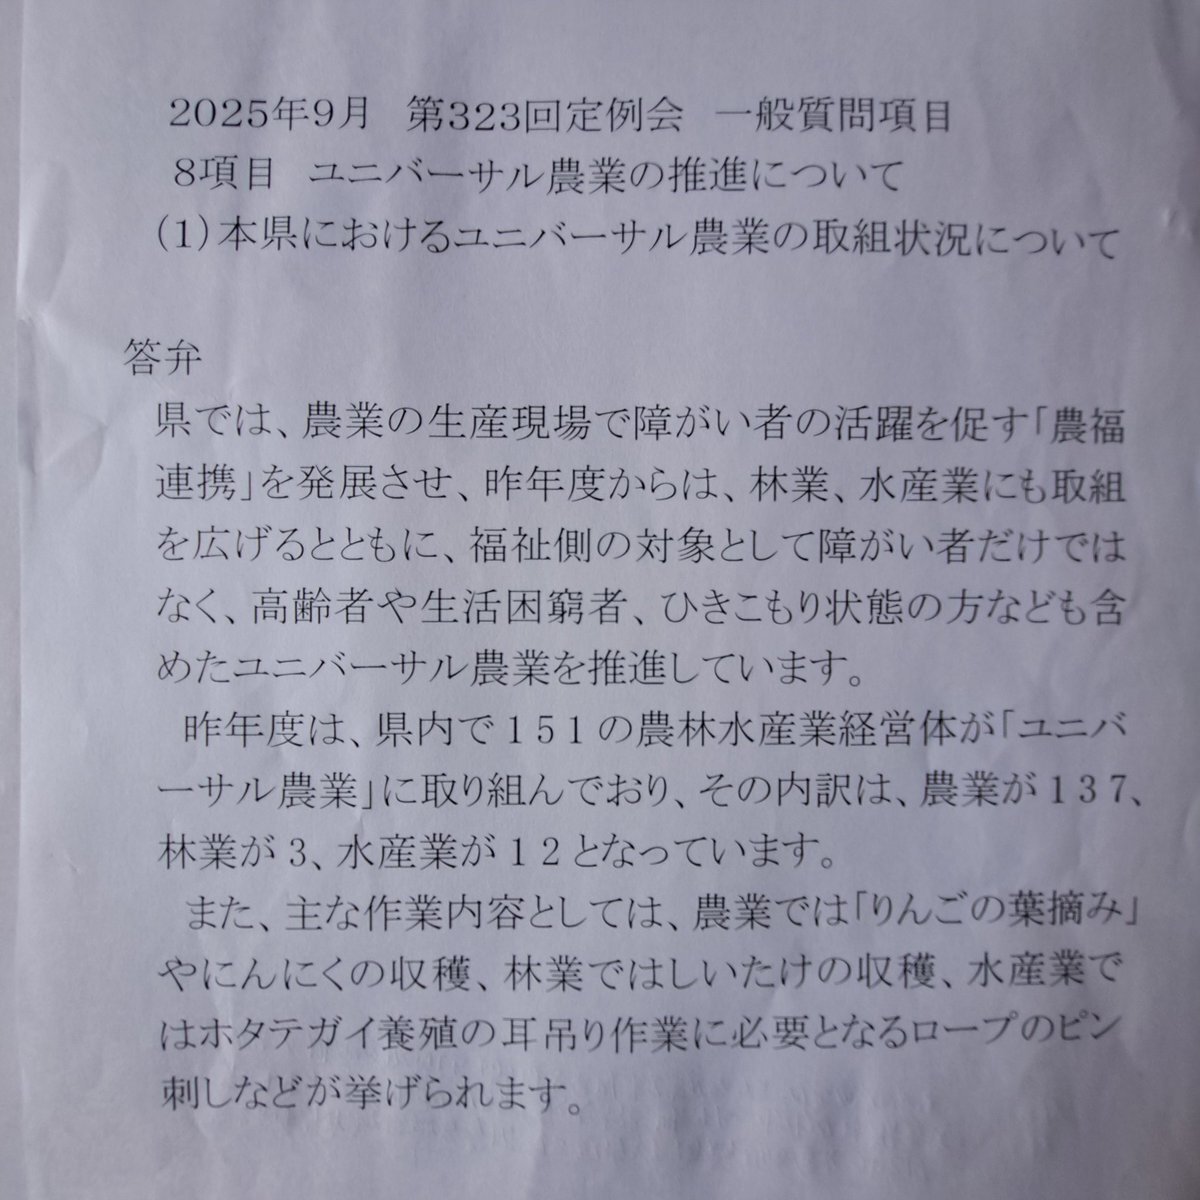 2025年9月　第323回定例会　一般質問項目
8項目　ユニバーサル農業の推進について
(1)本県におけるユニバーサル農業の取組状況について
答弁
県では、農業の生産現場で障がい者の活躍を促す「農福
連携」を発展させ、昨年度からは、林業、水産業にも取組
を広げるとともに、福祉側の対象として障がい者だけでは
なく、高齢者や生活困窮者、ひきこもり状態の方なども含
めたユニバーサル農業を推進しています。
昨年度は、県内で151の農林水産業経営体が「ユニバ
ーサル農業」に取り組んでおり、その内訳は、農業が137、
林業が3、水産業が12となっています。
また、主な作業内容としては、農業では「りんごの葉摘み」
やにんにくの収穫、林業ではしいたけの収穫、水産業で
はホタテガイ養殖の耳吊り作業に必要となるロープのピン
刺しなどが挙げられます。